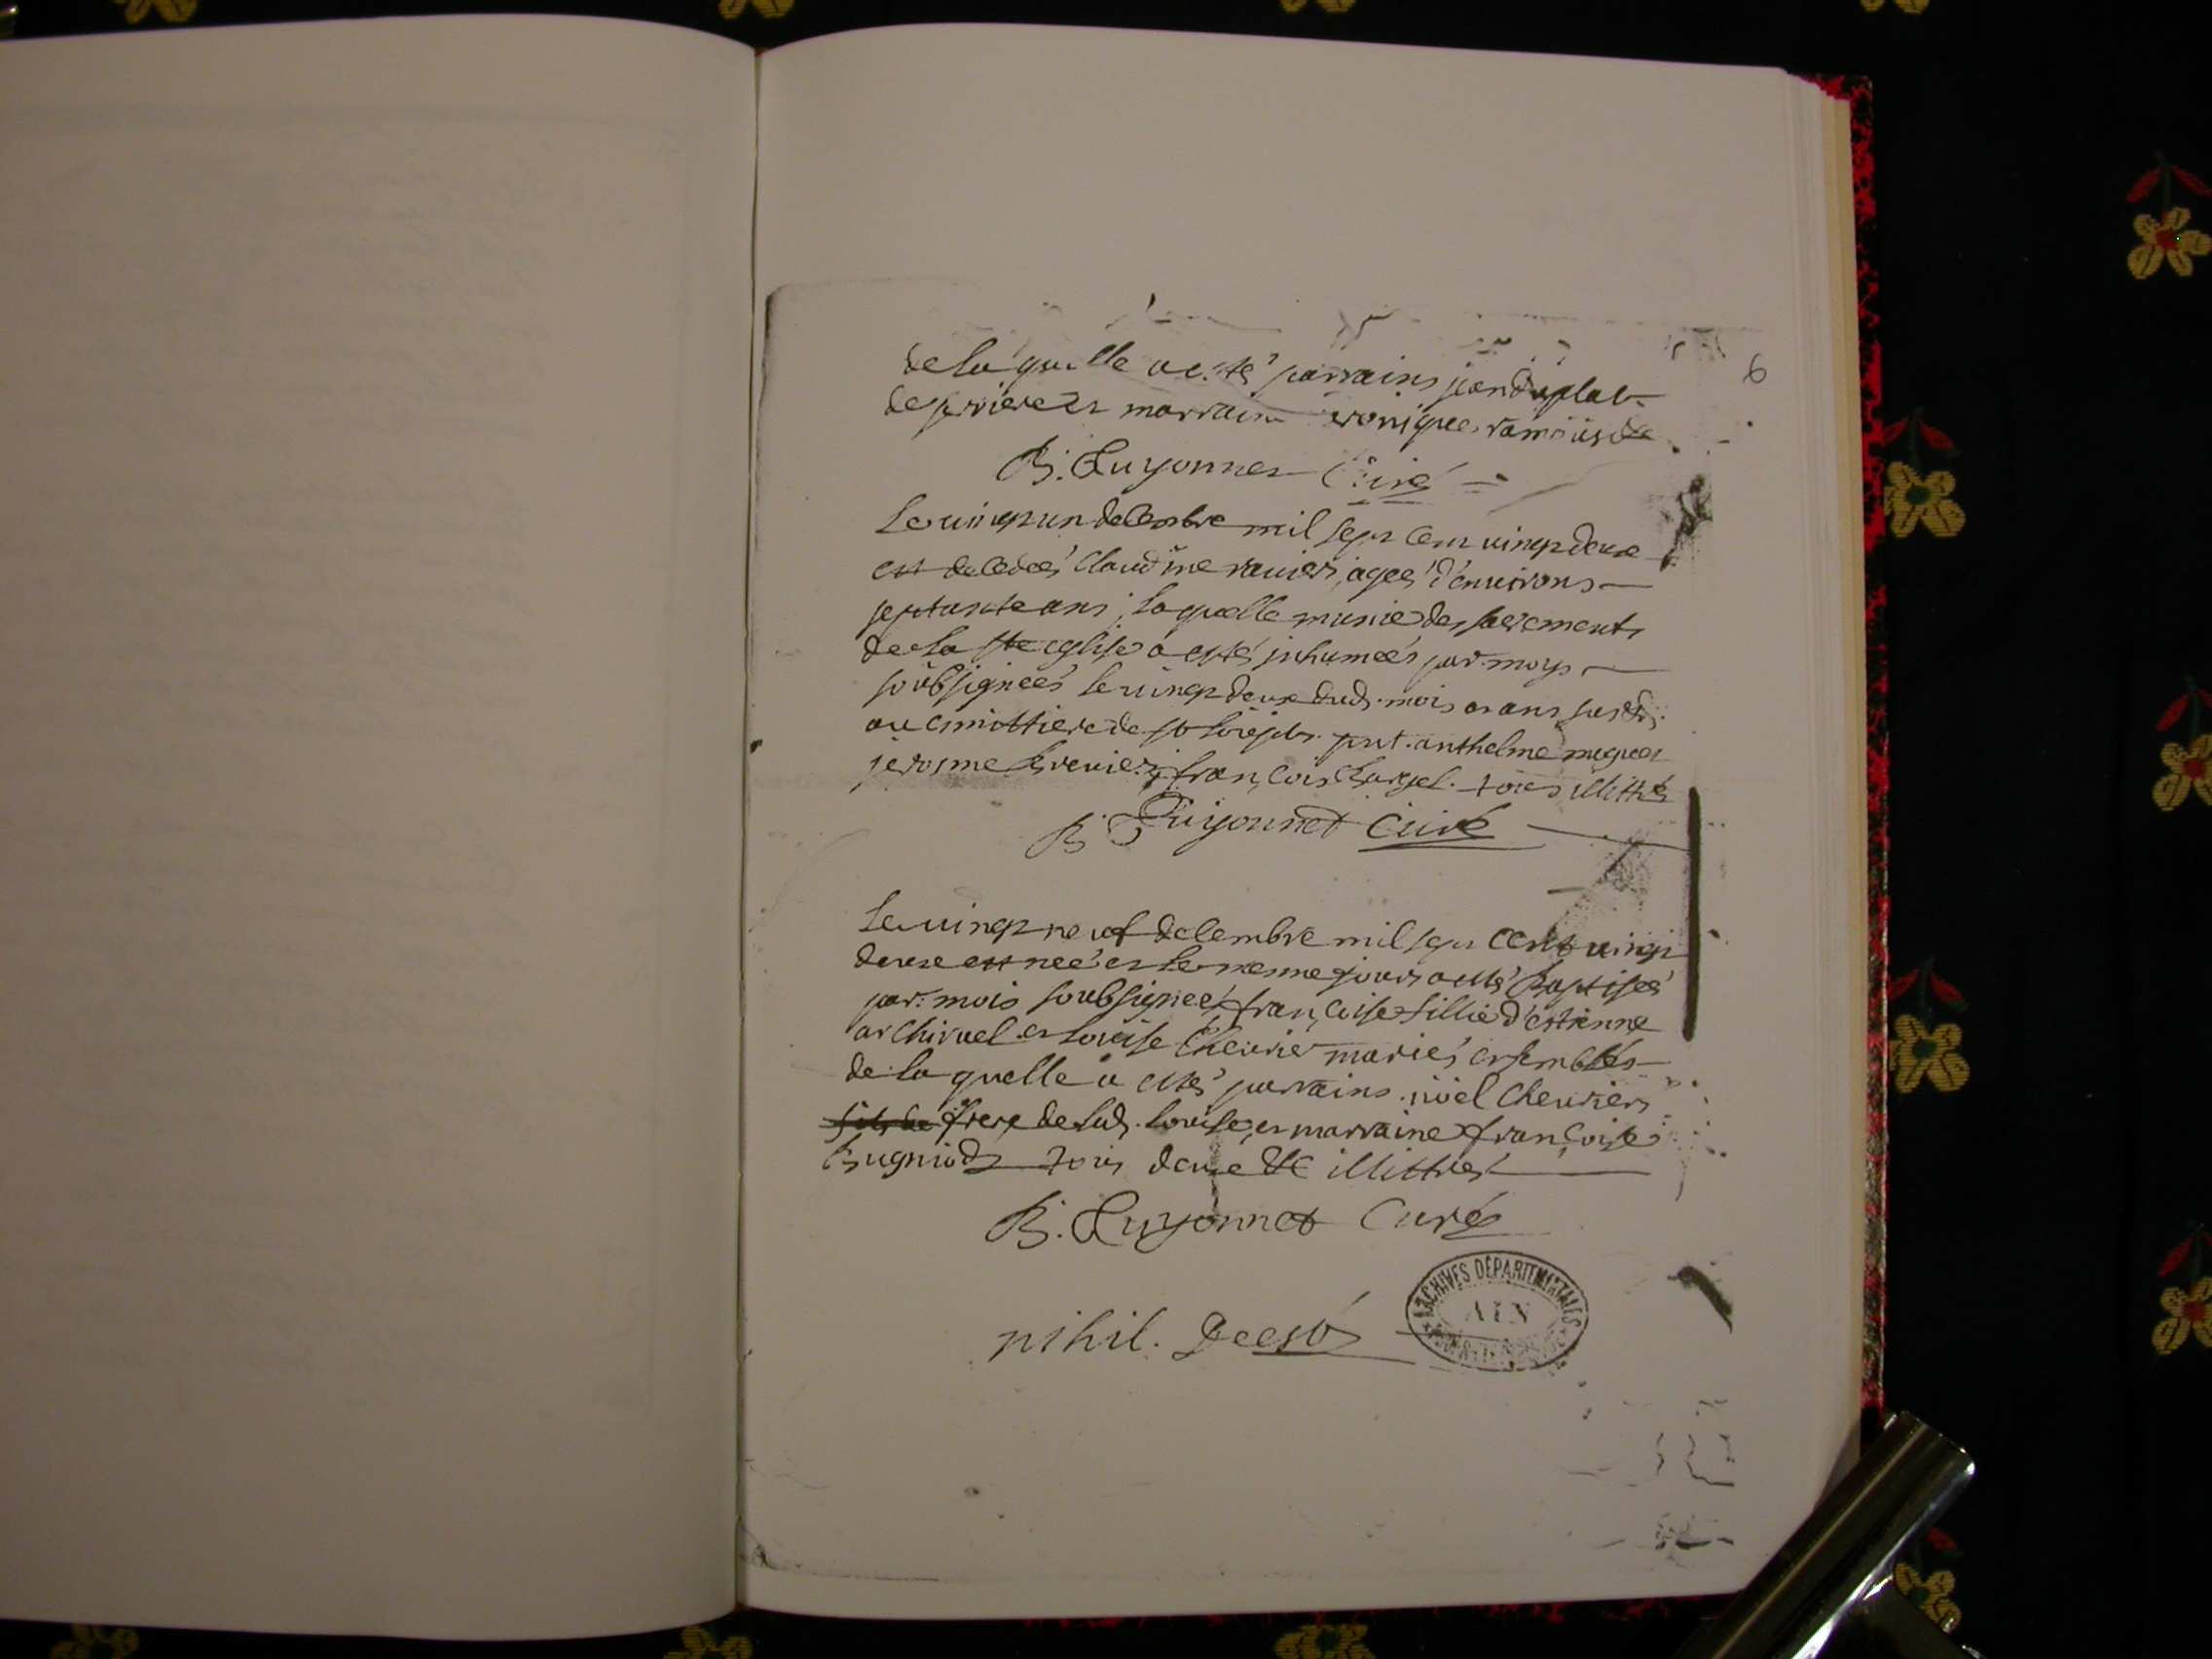 6
de la quelle a esté parrains jean duplat
de prieres marraine
B. Guyonnet Curé
le vingt un decembre mil sept cent vingt deux
est decedeé Claudine ravier, ageé d'environs
septante ans, laquelle munie des sacrements
de la ste eglise a esté inhumeé par moy
soubsigneé le vingt deux dud. mois et ans susd.
au cimittiere de st pnt. anthelme
jerosme françois tous illittrés
B Guyonnet Curé
le vingt neuf decembre mil sept cent vingt
deux est neé et le meme jours a esté Baptiseé
par mois soubsigneé françoise fillie d'estienne
archirel et louise Chevrier mariés ensembles
de la quelle a esté parrains noel Chevrier
fils de frere de lad. louise, et marraine françoise
Bugniod tous deux illittres
B. Guyonnet Curé
nihil. Deest
ARCHIVES DÉPARTEMENTALES
AIN